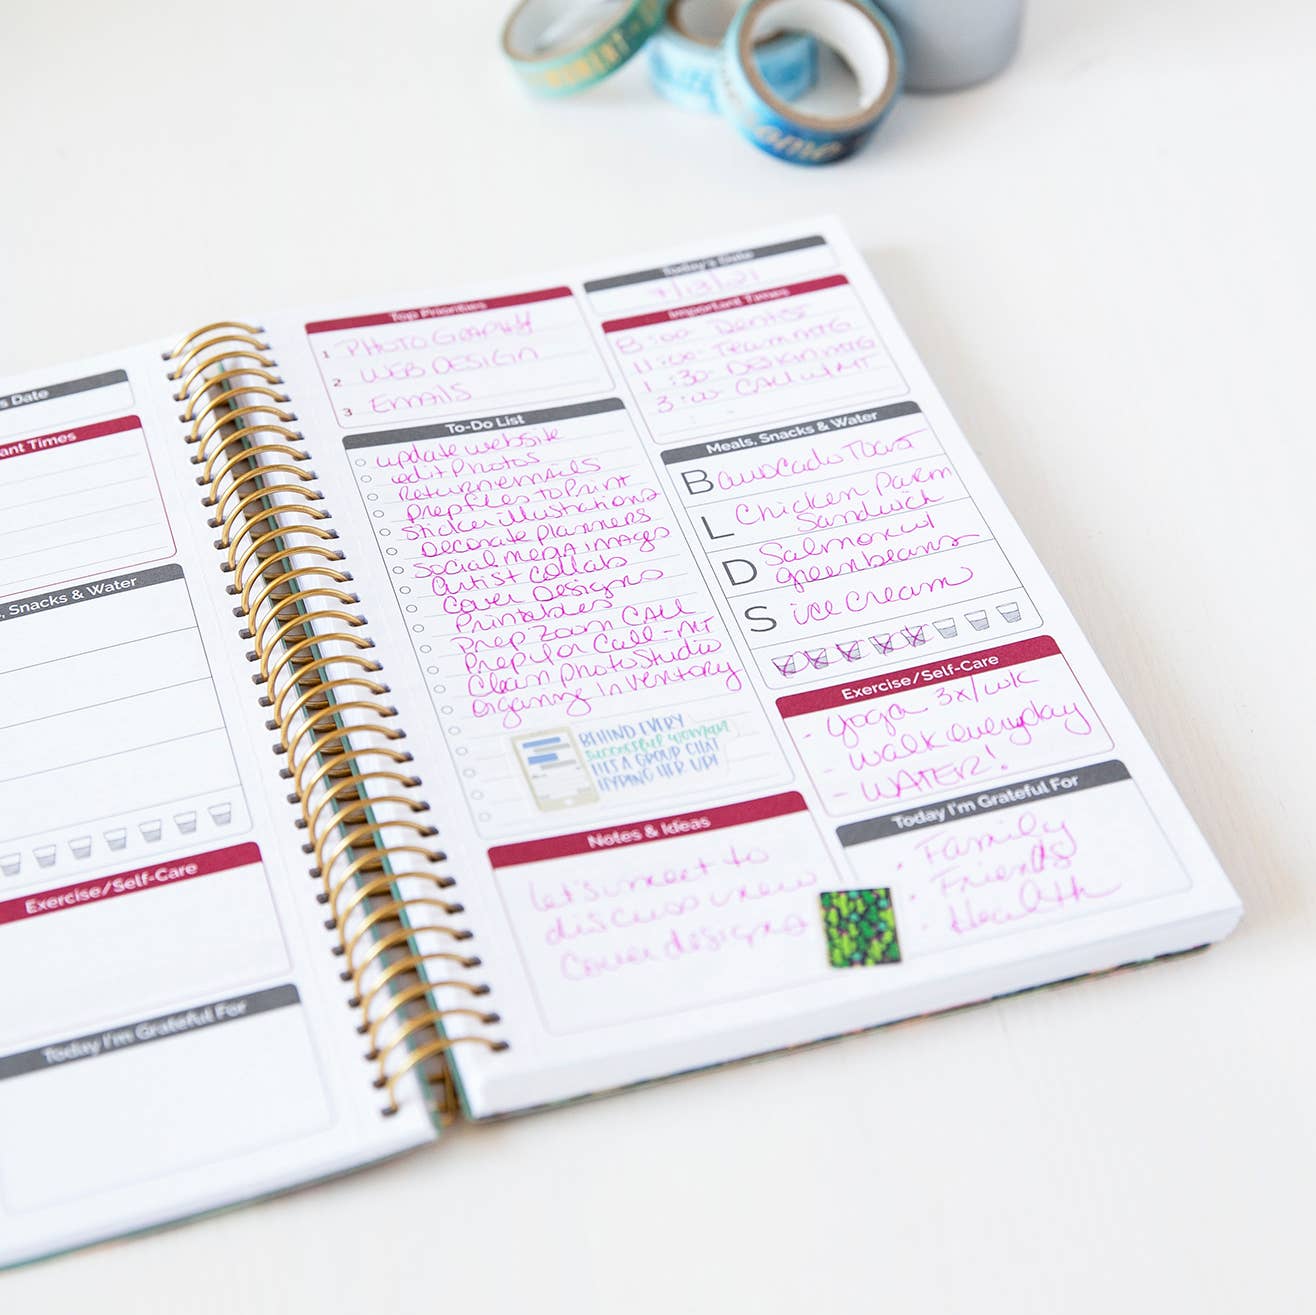 s Date
ant Times
, Snacks & Water
Exercise/Self-Care
Today I'm Grateful For
Top Priorities
1 PHOTOGRAPHY
2 WEB DESIGN
3 EMAILS
To-Do List
update website
edit Photos
Return emails
Prep Files to Print
Sticker illustrations
Decorate Planners
Social media images
Artist collab
Cover Designs
Printables
Prep Zoom CALL
Prep for Call-MT
Clean Photo Studio
Organize Inventory
BEHIND EVERY
SUCCESSFUL WOMAN
IS A GROUP CHAT
HYPING HER UP!
Notes & Ideas
let's meet to
discuss new
cover designs
Today's Date
/13/21
Important Times
8:00 Dentist
11:00 Team MTG
1:30 DESIGN MTG
3:00 CALL w/MT
Meals, Snacks & Water
B avocado Toast
L Chicken Parm
Sandwich
D Salmon w/
greenbeans
S ice cream
Exercise/Self-Care
- yoga 3x/wk
- walk everyday
- WATER!
Today I'm Grateful For
• Family
• Friends
• Health